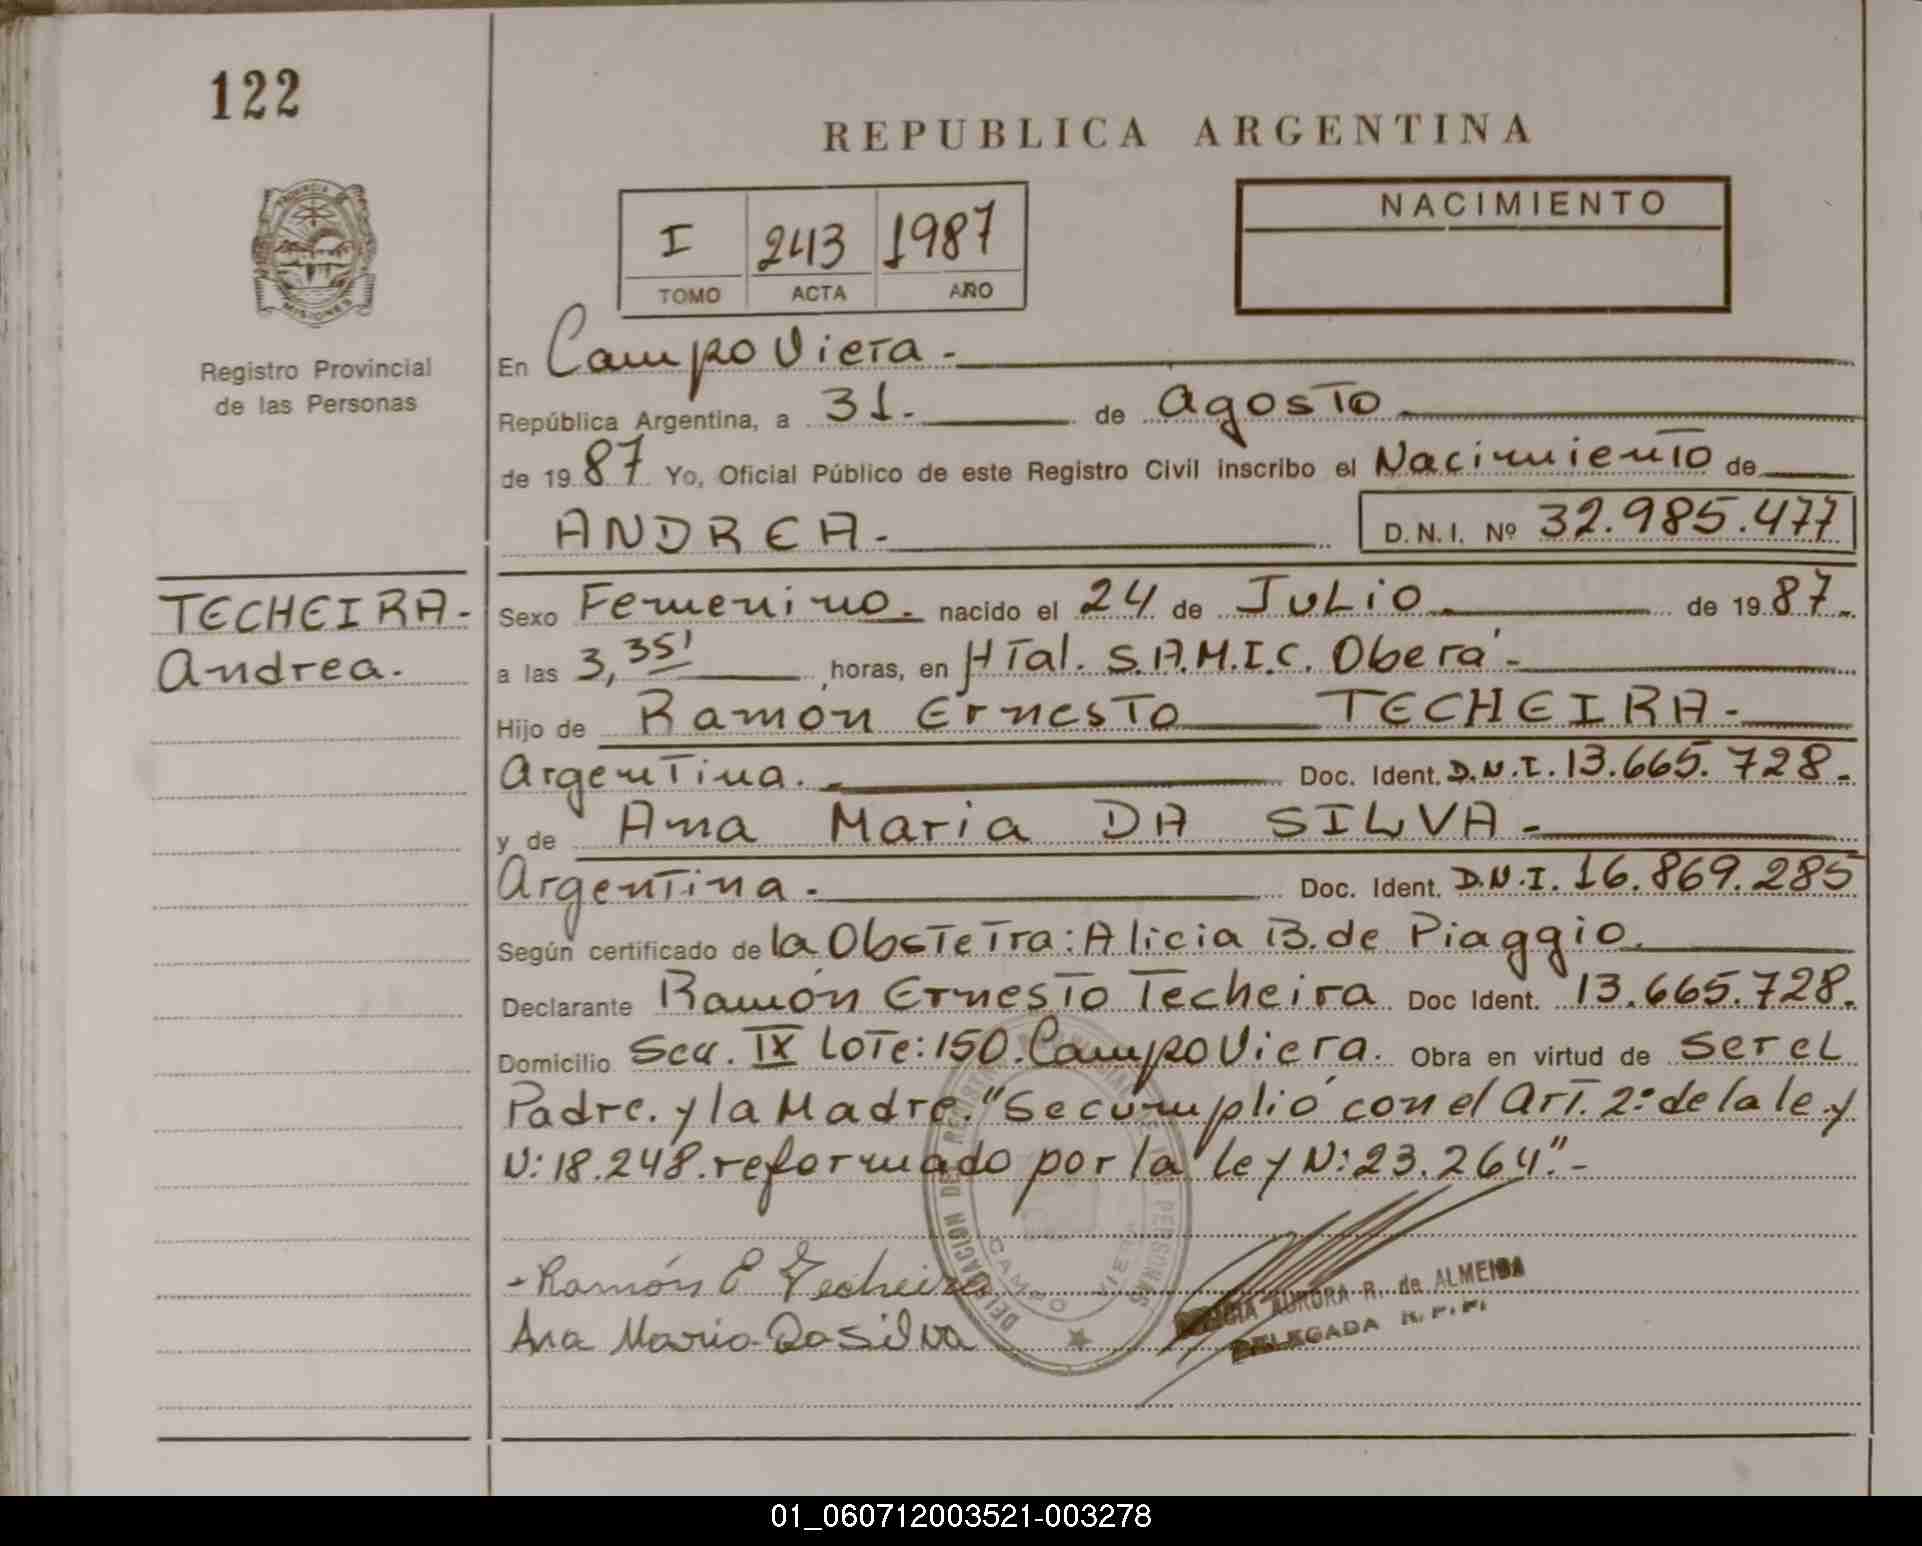 122
REPUBLICA ARGENTINA
PROVINCIA
MISIONES
I 243 1987
TOMO ACTA AÑO
NACIMIENTO
Registro Provincial
de las Personas
En Campo Viera.-
República Argentina, a 31. de Agosto
de 1987 Yo, Oficial Público de este Registro Civil inscribo el Nacimiento de
ANDREA.- D.N.I. Nº 32.985.477
TECHEIRA-
Andrea.
Sexo Femenino. nacido el 24 de Julio de 1987.
a las 3,35' horas, en HTal. S.A.M.I.C. Oberá.-
Hijo de Ramón Ernesto TECHEIRA-
Argentina.- Doc. Ident. D.N.I. 13.665.728.
y de Ana Maria DA SILVA-
Argentina. Doc. Ident. D.N.I. 16.869.285
Según certificado de la Obstetra: Alicia B. de Piaggio.
Declarante Ramón Ernesto Techeira Doc Ident. 13.665.728.
Domicilio Scc. IX Lote: 150. Campo Viera. Obra en virtud de ser el
Padre. y la Madre. "Se cumplió con el Art. 2º de la ley
N: 18.248. reformado por la ley N: 23.264".-
-Ramón E Techeira
Ana Maria Da Silva
DELEGACION DE REGISTRO PERSONAS
CAMPO VIERA
AURORA R. de ALMEIDA
DELEGADA R.P.P.
01_060712003521-003278